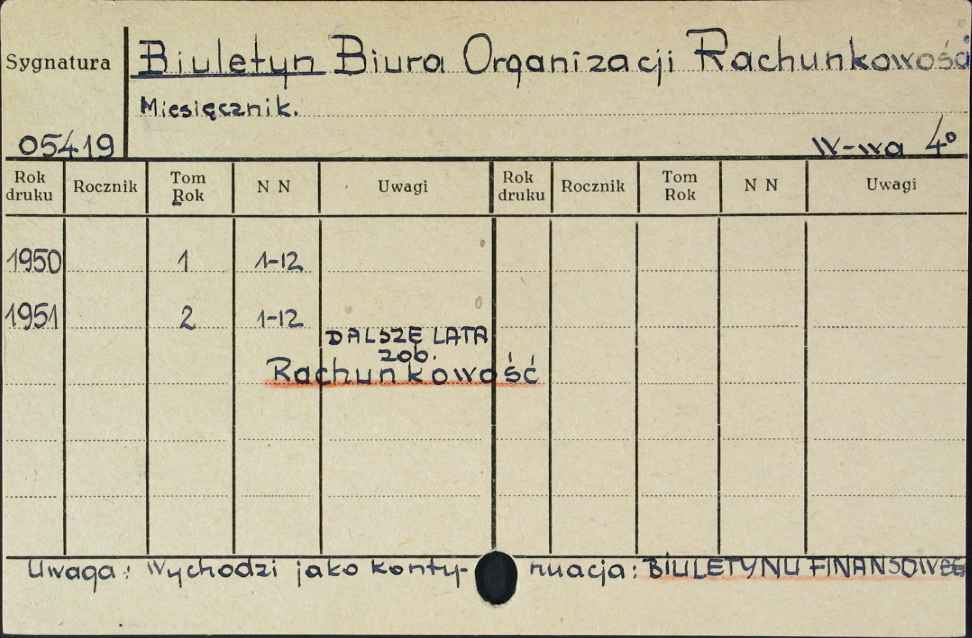 Sygnatura
Biuletyn Biura Organizacji Rachunkowości
Miesięcznik.
05419
W-wa 4°
Rok druku Rocznik Tom Rok N N Uwagi Rok druku Rocznik Tom Rok N N Uwagi
1950 1 1-12
1951 2 1-12
DALSZE LATA
zob.
Rachunkowość
Uwaga: Wychodzi jako konty- nuacja: BIULETYNU FINANSOWEG